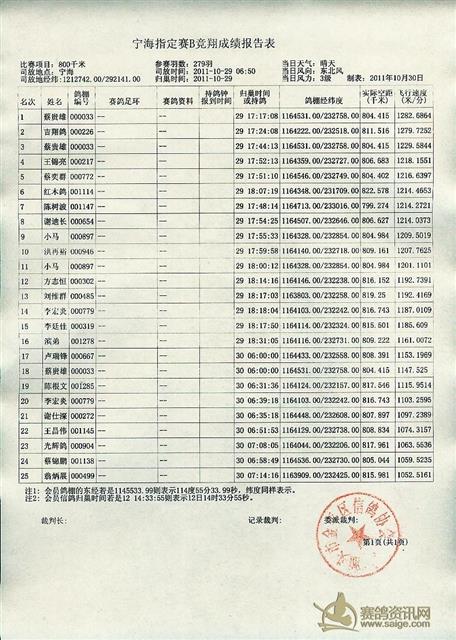 宁海指定赛B竞翔成绩报告表
比赛项目: 800千米 参赛羽数: 279羽 当日天气: 晴天
司放地点: 宁海 司放时间: 2011-10-29 06:50 当日风向: 东北风
司放地经纬: 1212742.00/292141.00 归巢时间: 2011-10-29 当日风力: 3级 制表: 2011年10月30日
名次 姓名 鸽棚编号 赛鸽足环 赛鸽资料 持鸽钟报到时间 归巢时间或持鸽 鸽棚经纬度 实际空距(千米) 飞行速度(米/分)
1 蔡贵雄 000033 29 17:17:08 1164531.00/232758.00 804.415 1282.6864
2 吉翔鸽 000226 29 17:24:08 1164222.00/232518.00 811.516 1279.7252
3 蔡贵雄 000033 29 17:44:13 1164531.00/232758.00 804.415 1229.5844
4 王锦亮 000217 29 17:52:13 1164359.00/232727.00 806.683 1218.1551
5 蔡奕群 000772 29 17:51:10 1164546.00/232749.00 804.402 1216.6397
6 红木鸽 001114 29 18:07:19 1164348.00/231709.00 822.578 1214.4653
7 陈树波 001147 29 17:48:14 1164713.00/233016.00 799.274 1214.2721
8 谢迪长 000654 29 17:54:25 1164507.00/232646.00 806.627 1214.0373
9 小马 000897 29 17:55:33 1164328.00/232854.00 804.984 1209.5019
10 洪再裕 000946 29 17:59:58 1164140.00/232718.00 809.161 1207.7625
11 小马 000897 29 18:00:12 1164328.00/232854.00 804.984 1201.1101
12 方志恒 000302 29 18:14:16 1164146.00/232120.00 816.152 1192.7391
13 刘维群 000485 29 18:17:03 1163803.00/232258.00 819.25 1192.4169
14 李宏炎 000779 29 18:18:04 1164103.00/232242.00 816.743 1187.0109
15 李廷佳 000319 29 18:17:50 1164114.00/232424.00 815.501 1185.609
16 滨弟 001278 29 18:31:05 1164216.00/232731.00 809.222 1161.0072
17 卢瑞锋 000667 30 06:00:00 1164433.00/232558.00 808.391 1153.1969
18 蔡贵雄 000033 30 06:00:00 1164531.00/232758.00 804.415 1147.525
19 陈根文 001285 30 06:31:36 1164124.00/232157.00 817.546 1115.9514
20 李宏炎 000779 30 06:39:19 1164103.00/232242.00 816.743 1103.2595
21 谢仕深 000272 30 06:35:18 1164448.00/232608.00 807.897 1097.2389
22 王昌伟 001145 30 06:51:53 1164129.00/232738.00 808.834 1074.3157
23 光辉鸽 000904 30 07:08:05 1164044.00/232206.00 817.961 1063.5536
24 蔡锦鹏 001138 30 06:58:49 1164536.00/232730.00 805.044 1059.5235
25 翁炳展 000499 30 07:14:16 1163909.00/232425.00 815.981 1052.5161
注1: 会员鸽棚的东经若是1145533.99则表示114度55分33.99秒, 纬度同样表示。
注2: 会员信鸽归巢时间若是12 14:33:55则表示12日14时33分55秒。
裁判长: 记录裁判: 委派裁判:
第1页(共1页)
区信鸽协会
赛鸽资讯网
www.saige.com